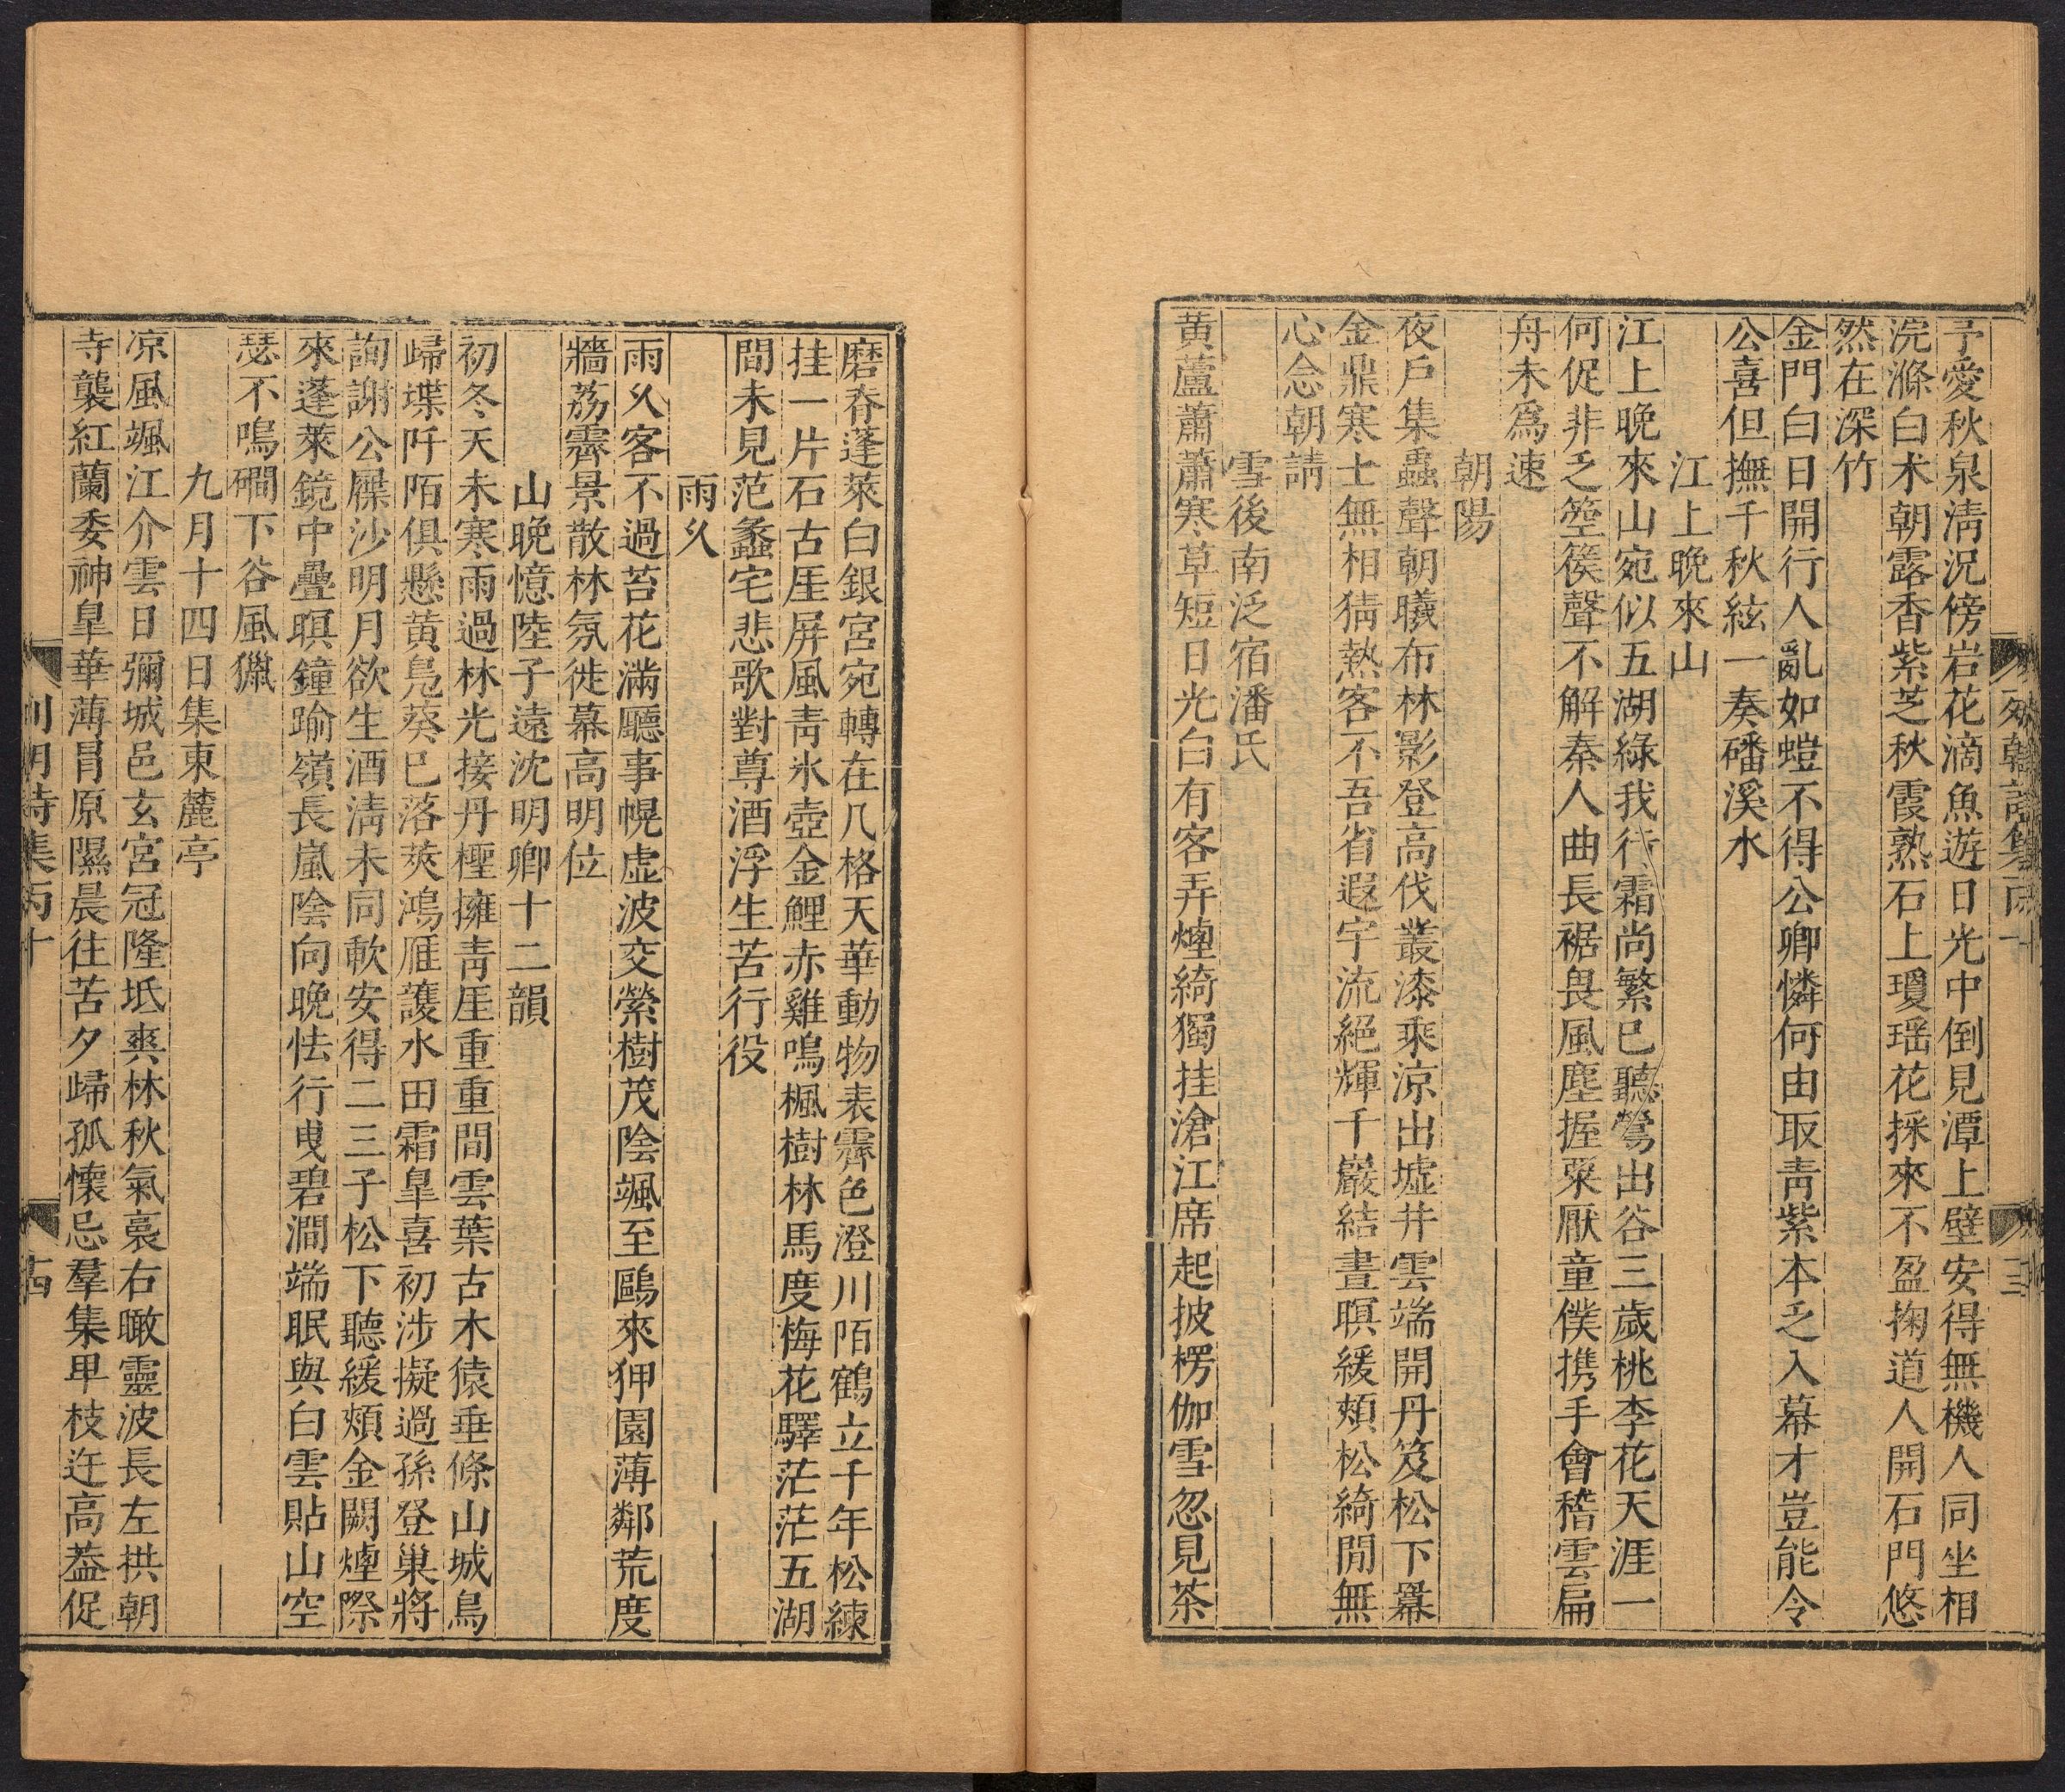 予愛秋泉清況傍岩花滴魚遊日光中倒見潭上壁安得無機人同坐相
浣滌白朮朝露香紫芝秋霞熟石上瓊瑶花採來不盈掬道人開石門悠
然在深竹
金門白日開行人亂如螘不得公卿憐何由取靑紫本乏入幕才豈能令
公喜但撫千秋絃一奏磻溪水
江上晚來山
江上晚來山宛似五湖綠我行霜尚繁已聽鶯出谷三歲桃李花天涯一
何促非乏箜篌聲不解秦人曲長裾畏風塵握粟厭童僕携手會稽雲扁
舟未爲速
朝陽
夜戶集蟲聲朝曦布林影登高伐叢漆乘涼出墟井雲端開丹笈松下羃
金鼎寒士無相猜熱客不吾省遐宇流絕輝千巖結晝暝緩頰松綺閒無
心念朝請
雪後南泛宿潘氏
黃蘆蕭蕭寒草短日光白有客弄煙綺獨挂滄江席起披楞伽雪忽見茶
磨舂蓬萊白銀宮宛轉在几格天華動物表霽色澄川陌鶴立千年松練
挂一片石古厓屏風靑氷壺金鯉赤雞鳴楓樹林馬度梅花驛茫茫五湖
間未見范蠡宅悲歌對尊酒浮生苦行役
雨乆
雨乆客不過苔花滿廳事幌虛波交縈樹茂陰颯至鷗來狎園薄鄰荒度
牆荔霽景散林氛徙幕高明位
山晚憶陸子遠沈明卿十二韻
初冬天未寒雨過林光接丹檉擁靑厓重重間雲葉古木猿垂條山城鳥
歸堞阡陌俱懸黃鳧葵已落莢鴻雁護水田霜皐喜初涉擬過孫登巢將
詢謝公屧沙明月欲生酒淸未同歃安得二三子松下聽緩頰金闕煙際
來蓬萊鏡中疊暝鐘踰嶺長嵐陰向晚怯行曳碧澗端眠與白雲貼山空
瑟不鳴磵下谷風獵
九月十四日集東麓亭
凉風颯江介雲日彌城邑玄宮冠隆坻爽林秋氣裛右瞰靈波長左拱朝
寺襲紅蘭委神皐華薄冒原隰晨往苦夕歸孤懷忌羣集卑枝迕高葢促